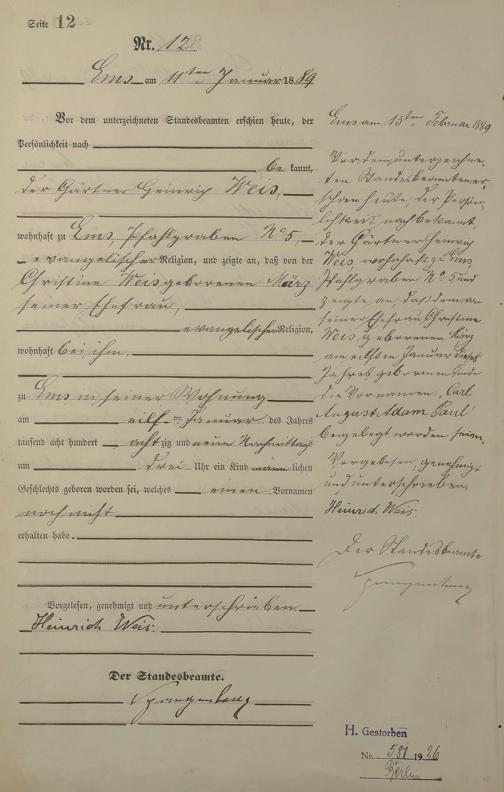 Seite 12
Nr. 12
Ems am 11ten Januar 1889
Vor dem unterzeichneten Standesbeamten erschien heute, der
Persönlichkeit nach
be kannt,
der Gärtner Heinrich Weis,
wohnhaft zu Ems, Pfahlgraben No 5,
evangelischer Religion, und zeigte an, daß von der
Christine Weis geborenen März
seiner Ehefrau,
evangelischer Religion,
wohnhaft bei ihm,
zu Ems in seiner Wohnung
am eilften Januar des Jahres
tausend acht hundert achtzig und neun Nachmittags
um drei Uhr ein Kind männlichen
Geschlechts geboren worden sei, welches einen Vornamen
noch nicht
erhalten habe.
Vorgelesen, genehmigt und unterschrieben
Heinrich Weis.
Der Standesbeamte.
Spangenberg
Ems am 15ten Februar 1889
Vor dem unterzeichne
ten Standesbeamten er
schien heute, der Persön
lichkeit nach bekannt,
der Gärtner Heinrich
Weis wohnhaft zu Ems
Pfahlgraben No 5 und
zeigte an, daß dem von
seiner Ehefrau Christine
Weis, geborenen März
am eilften Januar dieses
Jahres geborenen Kinde
die Vornamen: Carl
August Adam Paul
beigelegt worden seien.
Vorgelesen, genehmigt
und unterschrieben
Heinrich Weis.
Der Standesbeamte
Spangenberg
H. Gestorben
Nr. 581 1926
Berlin